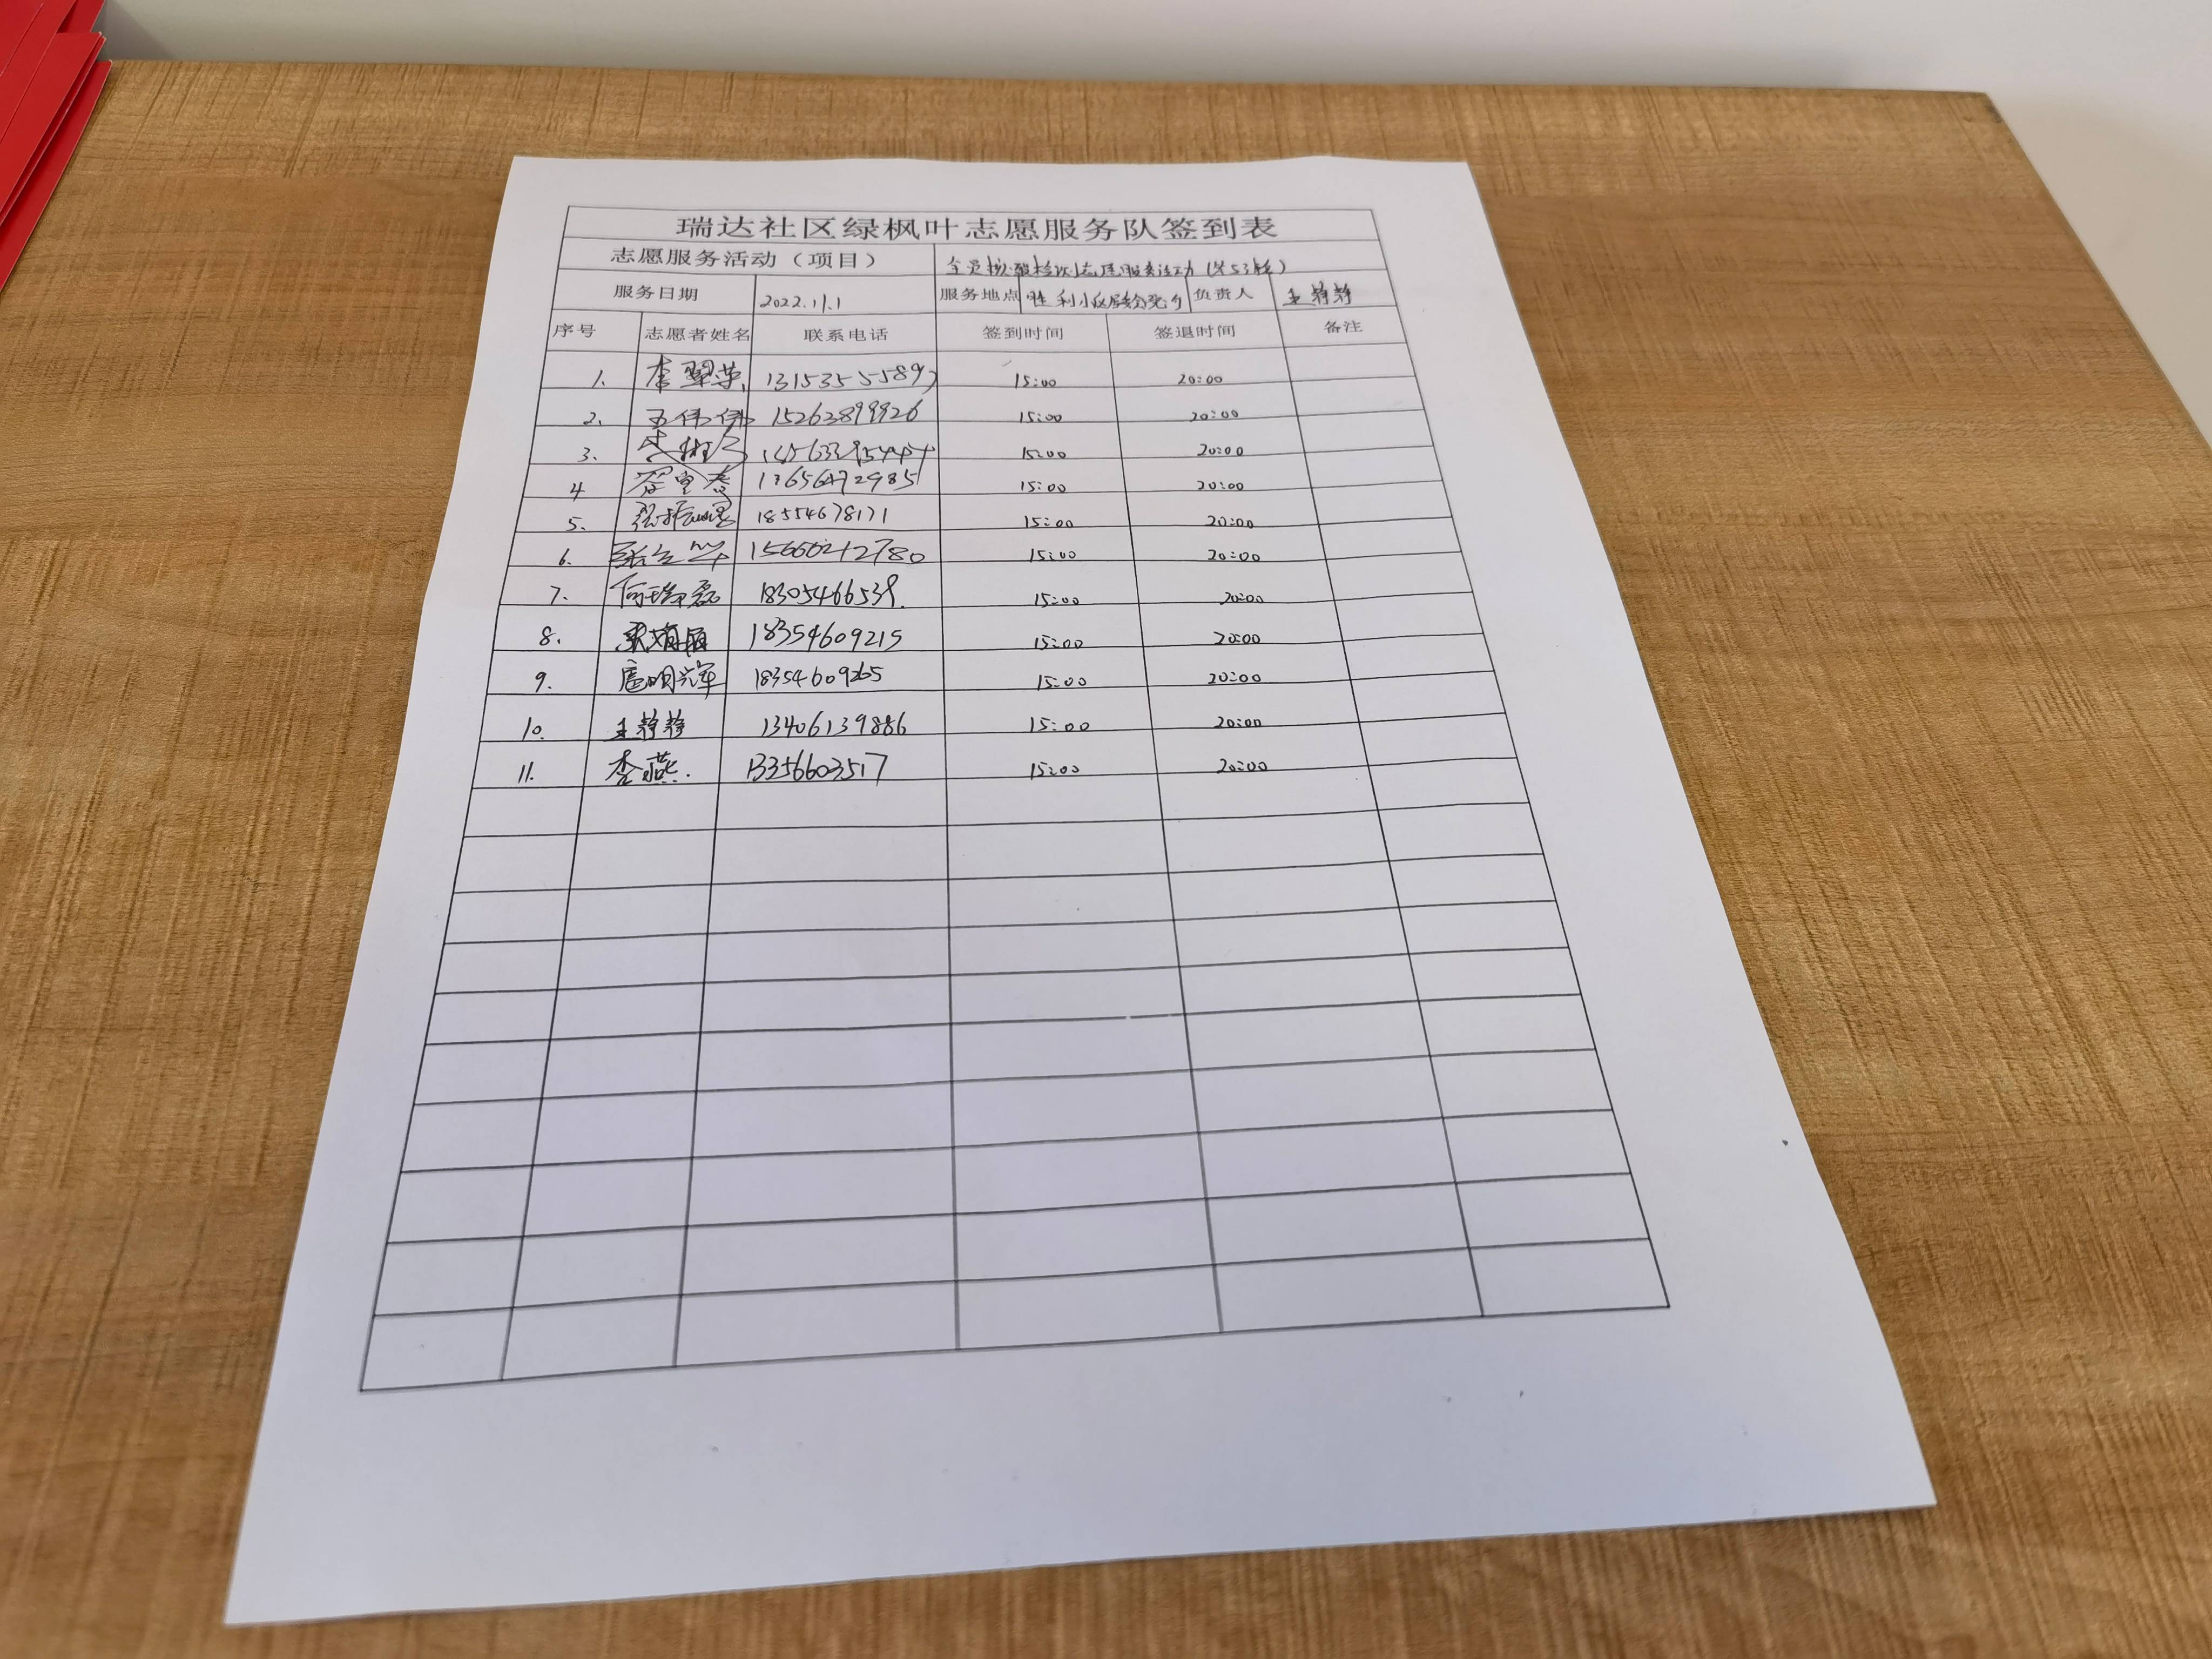 瑞达社区绿枫叶志愿服务队签到表
志愿服务活动（项目） 全员核酸检测志愿服务活动（第53轮）
服务日期 2022.11.1 服务地点 胜利小区 负责人 王静静
序号 志愿者姓名 联系电话 签到时间 签退时间 备注
1. 李翠荣 13153555589 15:00 20:00
2. 王伟伟 15263899926 15:00 20:00
3. 15:00 20:00
4 15:00 20:00
5. 18554678171 15:00 20:00
6. 15:00 20:00
7. 何瑞磊 18305466539 15:00 20:00
8. 18354609215 15:00 20:00
9. 扈明辉 18354609265 15:00 20:00
10. 王静静 13406139886 15:00 20:00
11. 李燕 13356603517 15:00 20:00